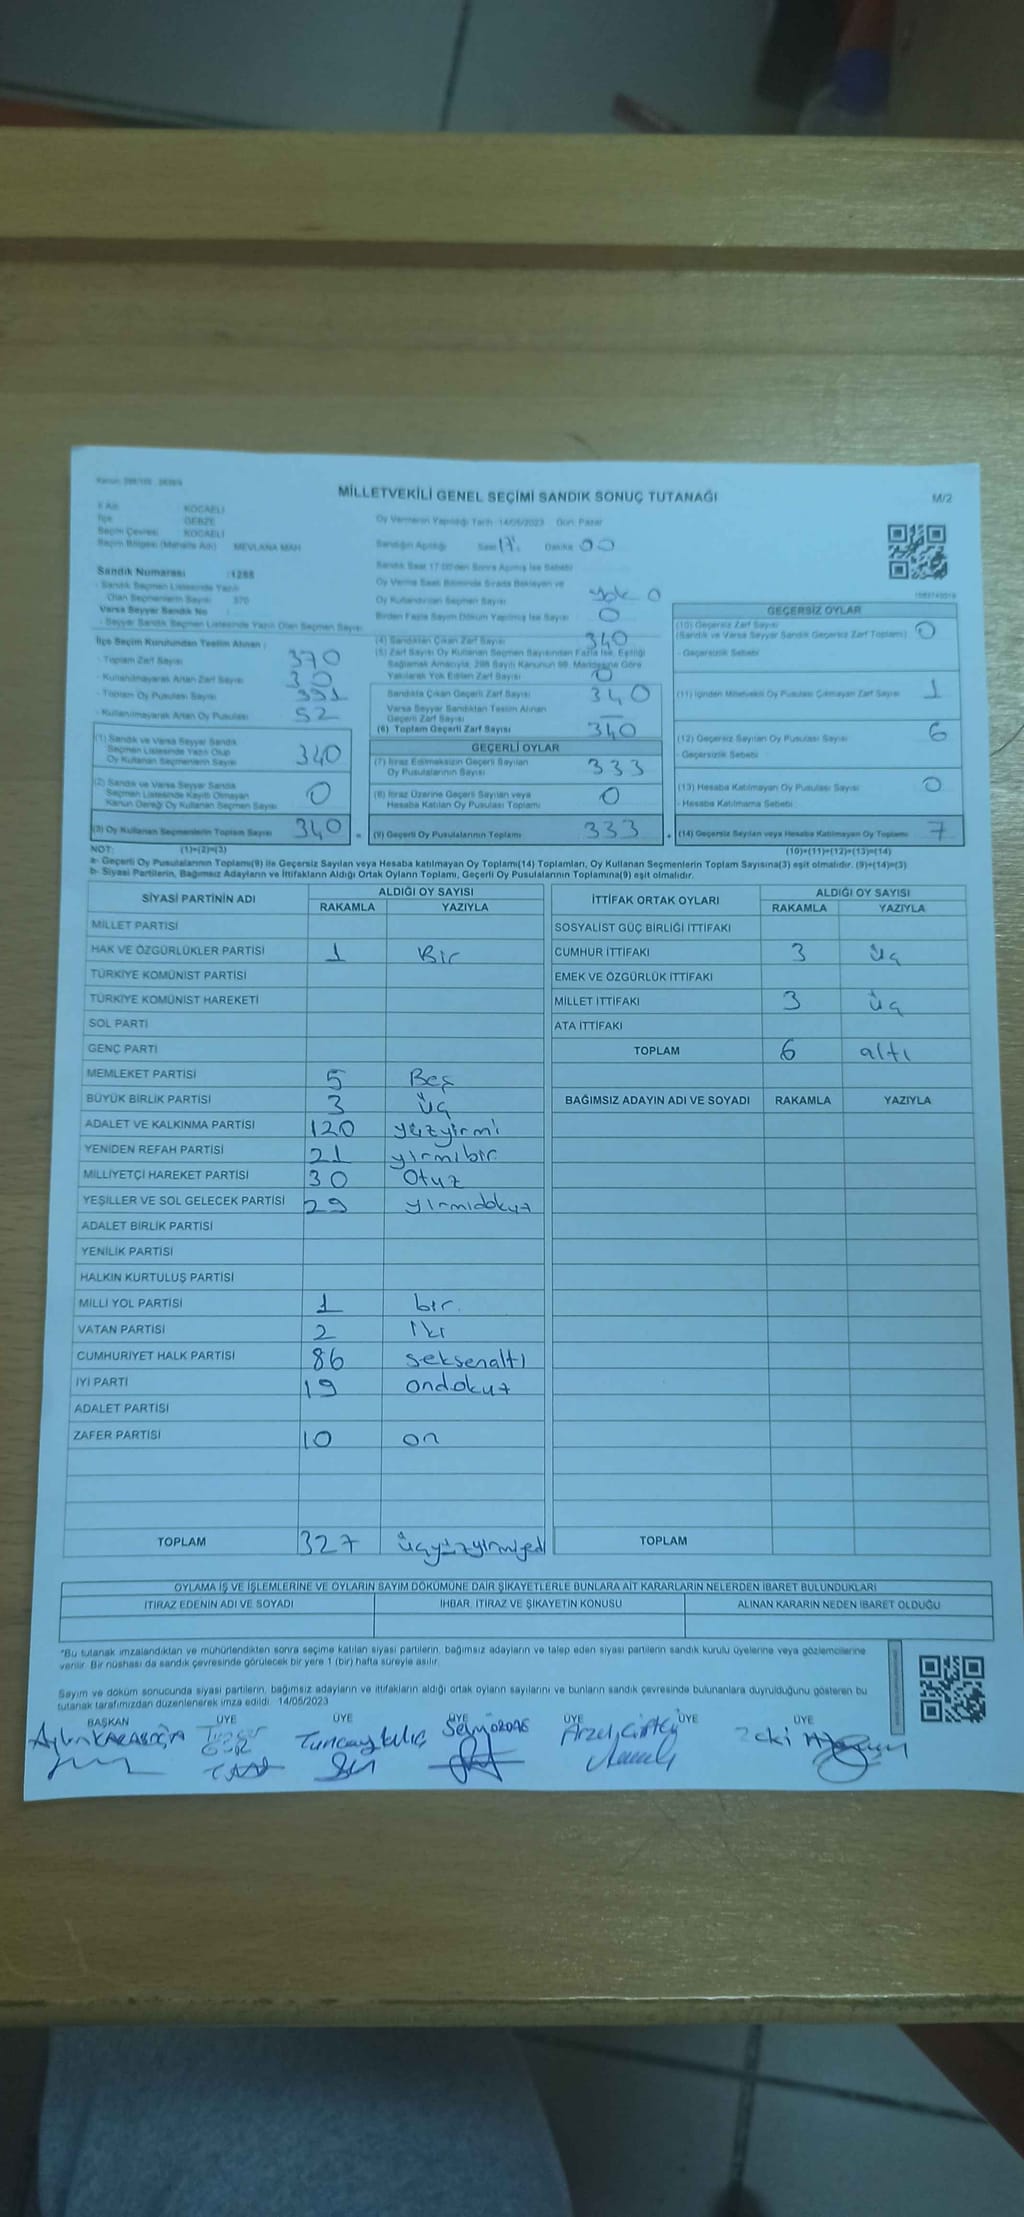 MİLLETVEKİLİ GENEL SEÇİMİ SANDIK SONUÇ TUTANAĞI
M/2
İl Adı : KOCAELİ
İlçe : GEBZE
Seçim Çevresi : KOCAELİ
Seçim Bölgesi (Mahalle Adı) : MEVLANA MAH
Oy Vermenin Yapıldığı Tarih :14/05/2023 Gün: Pazar
Sandığın Açıldığı Saat 17. Dakika 00
Sandık Saat 17:00'den Sonra Açılmış İse Sebebi
Sandık Numarası :1288
- Sandık Seçmen Listesinde Yazılı Olan Seçmenlerin Sayısı : 370
Varsa Seyyar Sandık No :
- Seyyar Sandık Seçmen Listesinde Yazılı Olan Seçmen Sayısı:
Oy Verme Saati Bitiminde Sırada Bekleyen ve
Oy Kullandırılan Seçmen Sayısı yok 0
Birden Fazla Sayım Döküm Yapılmış İse Sayısı 0
İlçe Seçim Kurulundan Teslim Alınan :
- Toplam Zarf Sayısı 370
- Kullanılmayarak Artan Zarf Sayısı 30
- Toplam Oy Pusulası Sayısı
- Kullanılmayarak Artan Oy Pusulası 52
(1) Sandık ve Varsa Seyyar Sandık
Seçmen Listesinde Yazılı Olup
Oy Kullanan Seçmenlerin Sayısı 340
(2) Sandık ve Varsa Seyyar Sandık
Seçmen Listesinde Kayıtlı Olmayan
Kanun Gereği Oy Kullanan Seçmen Sayısı 0
(3) Oy Kullanan Seçmenlerin Toplam Sayısı 340
(4) Sandıktan Çıkan Zarf Sayısı 340
(5) Zarf Sayısı Oy Kullanan Seçmen Sayısından Fazla İse, Eşitliği
Sağlamak Amacıyla, 298 Sayılı Kanunun 98. Maddesine Göre
Yakılarak Yok Edilen Zarf Sayısı 0
Sandıkta Çıkan Geçerli Zarf Sayısı 340
Varsa Seyyar Sandıktan Teslim Alınan
Geçerli Zarf Sayısı —
(6) Toplam Geçerli Zarf Sayısı 340
GEÇERLİ OYLAR
(7) İtiraz Edilmeksizin Geçerli Sayılan
Oy Pusulalarının Sayısı 333
(8) İtiraz Üzerine Geçerli Sayılan veya
Hesaba Katılan Oy Pusulası Toplamı 0
(9) Geçerli Oy Pusulalarının Toplamı 333
GEÇERSİZ OYLAR
(10) Geçersiz Zarf Sayısı 0
(Sandık ve Varsa Seyyar Sandık Geçersiz Zarf Toplamı)
- Geçersizlik Sebebi
(11) İçinden Milletvekili Oy Pusulası Çıkmayan Zarf Sayısı 1
(12) Geçersiz Sayılan Oy Pusulası Sayısı 6
- Geçersizlik Sebebi
(13) Hesaba Katılmayan Oy Pusulası Sayısı 0
- Hesaba Katılmama Sebebi
(14) Geçersiz Sayılan veya Hesaba Katılmayan Oy Toplamı 7
NOT: (1)+(2)=(3) (10)+(11)+(12)+(13)=(14)
a- Geçerli Oy Pusulalarının Toplamı(9) ile Geçersiz Sayılan veya Hesaba katılmayan Oy Toplamı(14) Toplamları, Oy Kullanan Seçmenlerin Toplam Sayısına(3) eşit olmalıdır. (9)+(14)=(3)
b- Siyasi Partilerin, Bağımsız Adayların ve İttifakların Aldığı Ortak Oyların Toplamı, Geçerli Oy Pusulalarının Toplamına(9) eşit olmalıdır.
SİYASİ PARTİNİN ADI ALDIĞI OY SAYISI
RAKAMLA YAZIYLA
MİLLET PARTİSİ
HAK VE ÖZGÜRLÜKLER PARTİSİ 1 Bir
TÜRKİYE KOMÜNİST PARTİSİ
TÜRKİYE KOMÜNİST HAREKETİ
SOL PARTİ
GENÇ PARTİ
MEMLEKET PARTİSİ 5 Beş
BÜYÜK BİRLİK PARTİSİ 3 üç
ADALET VE KALKINMA PARTİSİ 120 yüzyirmi
YENİDEN REFAH PARTİSİ 21 yirmibir
MİLLİYETÇİ HAREKET PARTİSİ 30 Otuz
YEŞİLLER VE SOL GELECEK PARTİSİ 29 yirmidokuz
ADALET BİRLİK PARTİSİ
YENİLİK PARTİSİ
HALKIN KURTULUŞ PARTİSİ
MİLLİ YOL PARTİSİ 1 bir.
VATAN PARTİSİ 2 iki
CUMHURİYET HALK PARTİSİ 86 seksenaltı
İYİ PARTİ 19 ondokuz
ADALET PARTİSİ
ZAFER PARTİSİ 10 on
TOPLAM 327 üçyüzyirmiyedi
İTTİFAK ORTAK OYLARI ALDIĞI OY SAYISI
RAKAMLA YAZIYLA
SOSYALİST GÜÇ BİRLİĞİ İTTİFAKI
CUMHUR İTTİFAKI 3 üç
EMEK VE ÖZGÜRLÜK İTTİFAKI
MİLLET İTTİFAKI 3 üç
ATA İTTİFAKI
TOPLAM 6 altı
BAĞIMSIZ ADAYIN ADI VE SOYADI RAKAMLA YAZIYLA
TOPLAM
OYLAMA İŞ VE İŞLEMLERİNE VE OYLARIN SAYIM DÖKÜMÜNE DAİR ŞİKAYETLERLE BUNLARA AİT KARARLARIN NELERDEN İBARET BULUNDUKLARI
İTİRAZ EDENİN ADI VE SOYADI İHBAR, İTİRAZ VE ŞİKAYETİN KONUSU ALINAN KARARIN NEDEN İBARET OLDUĞU
*Bu tutanak imzalandıktan ve mühürlendikten sonra seçime katılan siyasi partilerin, bağımsız adayların ve talep eden siyasi partilerin sandık kurulu üyelerine veya gözlemcilerine
verilir. Bir nüshası da sandık çevresinde görülecek bir yere 1 (bir) hafta süreyle asılır.
Sayım ve döküm sonucunda siyasi partilerin, bağımsız adayların ve ittifakların aldığı ortak oyların sayılarını ve bunların sandık çevresinde bulunanlara duyrulduğunu gösteren bu
tutanak tarafımızdan düzenlenerek imza edildi. 14/05/2023
BAŞKAN ÜYE ÜYE ÜYE ÜYE ÜYE ÜYE
Tuncay Kılıç Zeki